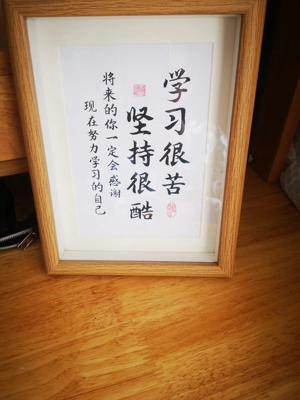 学习很苦
坚持很酷
将来的你一定会感谢
现在努力学习的自己